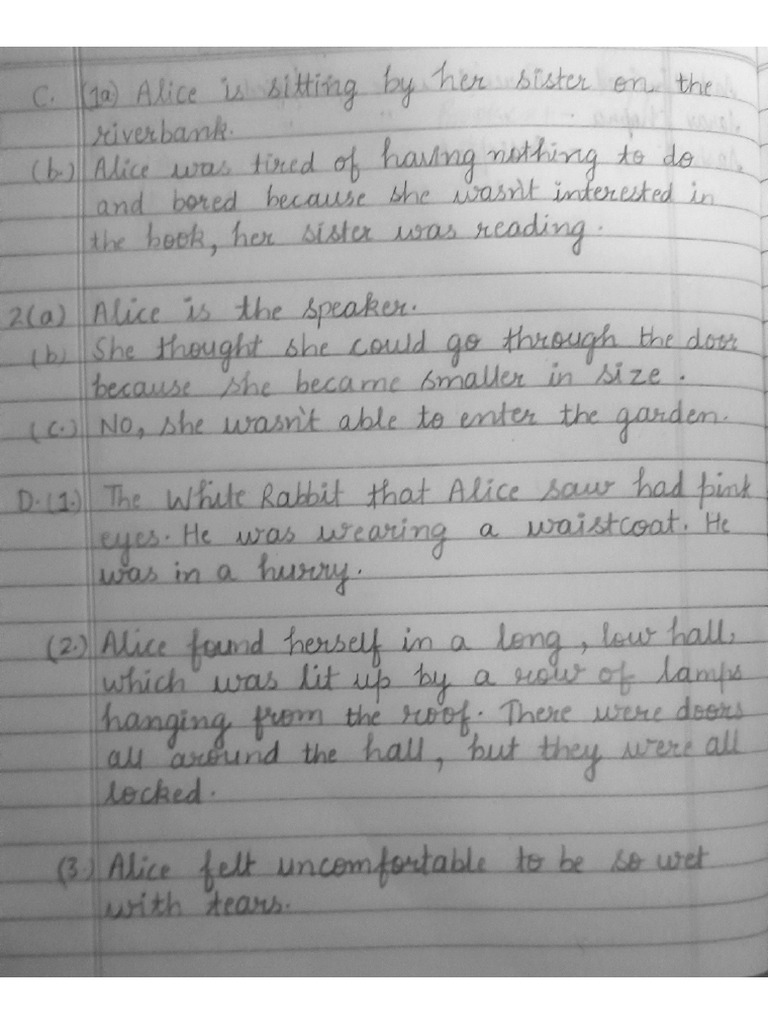 C. (1a) Alice is sitting by her sister on the
riverbank.
(b.) Alice was tired of having nothing to do
and bored because she wasn't interested in
the book, her sister was reading.
2(a) Alice is the speaker.
(b) She thought she could go through the door
because she became smaller in size.
(c.) No, she wasn't able to enter the garden.
D.(1.) The White Rabbit that Alice saw had pink
eyes. He was wearing a waistcoat. He
was in a hurry.
(2.) Alice found herself in a long, low hall,
which was lit up by a row of lamps
hanging from the roof. There were doors
all around the hall, but they were all
locked.
(3.) Alice felt uncomfortable to be so wet
with tears.